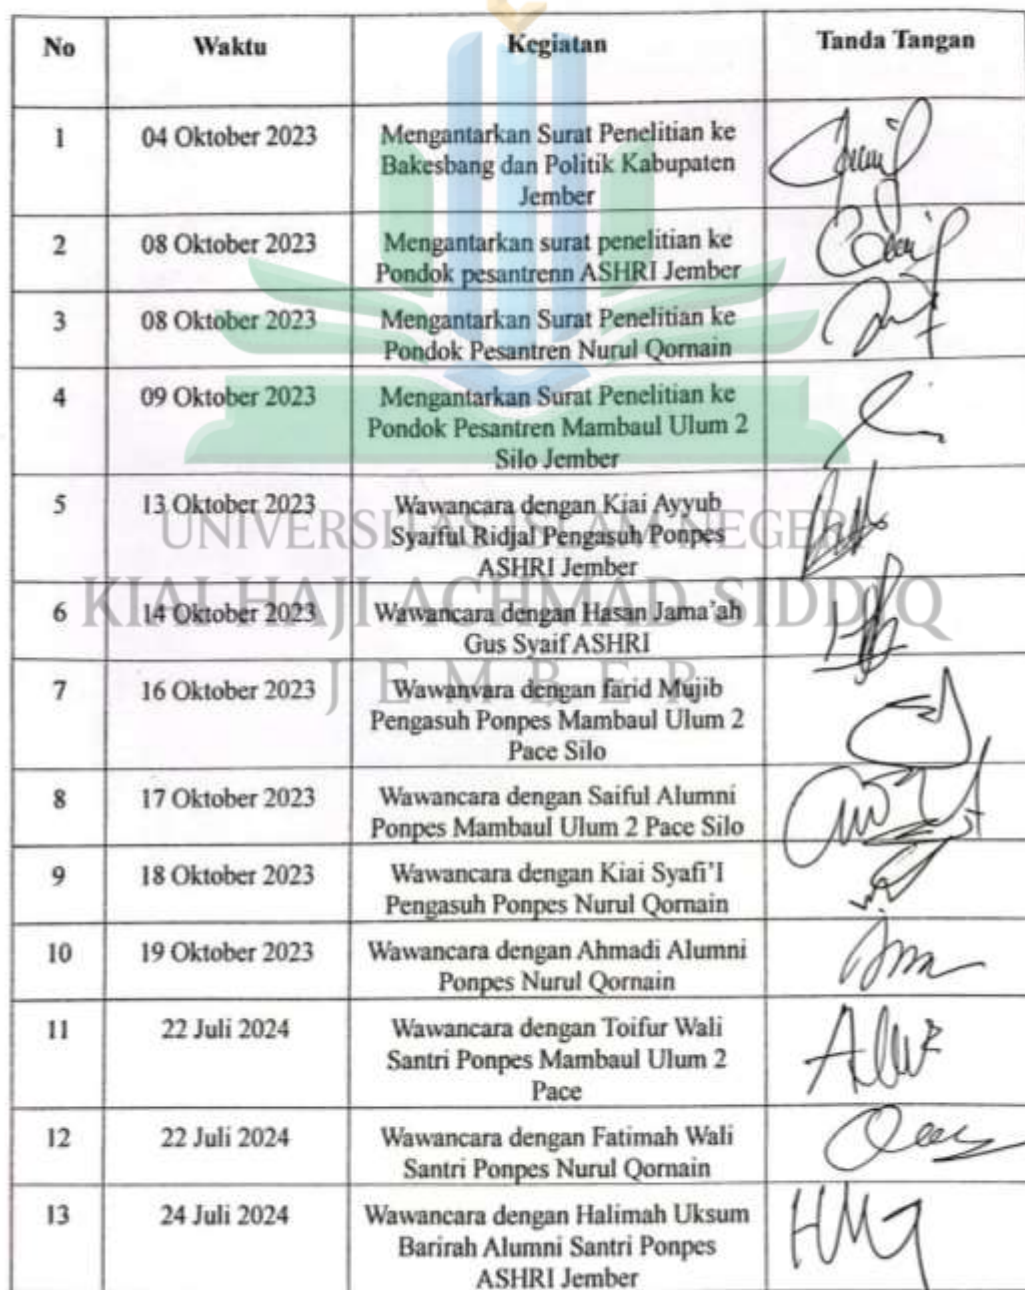 No Waktu Kegiatan Tanda Tangan
1 04 Oktober 2023 Mengantarkan Surat Penelitian ke
Bakesbang dan Politik Kabupaten
Jember
2 08 Oktober 2023 Mengantarkan surat penelitian ke
Pondok pesantrenn ASHRI Jember
3 08 Oktober 2023 Mengantarkan Surat Penelitian ke
Pondok Pesantren Nurul Qornain
4 09 Oktober 2023 Mengantarkan Surat Penelitian ke
Pondok Pesantren Mambaul Ulum 2
Silo Jember
5 13 Oktober 2023 Wawancara dengan Kiai Ayyub
Syaiful Ridjal Pengasuh Ponpes
ASHRI Jember
6 14 Oktober 2023 Wawancara dengan Hasan Jama'ah
Gus Syaif ASHRI
7 16 Oktober 2023 Wawanvara dengan farid Mujib
Pengasuh Ponpes Mambaul Ulum 2
Pace Silo
8 17 Oktober 2023 Wawancara dengan Saiful Alumni
Ponpes Mambaul Ulum 2 Pace Silo
9 18 Oktober 2023 Wawancara dengan Kiai Syafi'I
Pengasuh Ponpes Nurul Qornain
10 19 Oktober 2023 Wawancara dengan Ahmadi Alumni
Ponpes Nurul Qornain
11 22 Juli 2024 Wawancara dengan Toifur Wali
Santri Ponpes Mambaul Ulum 2
Pace
12 22 Juli 2024 Wawancara dengan Fatimah Wali
Santri Ponpes Nurul Qornain
13 24 Juli 2024 Wawancara dengan Halimah Uksum
Barirah Alumni Santri Ponpes
ASHRI Jember
UNIVERSITAS ISLAM NEGERI
KIAI HAJI ACHMAD SIDDIQ
JEMBER